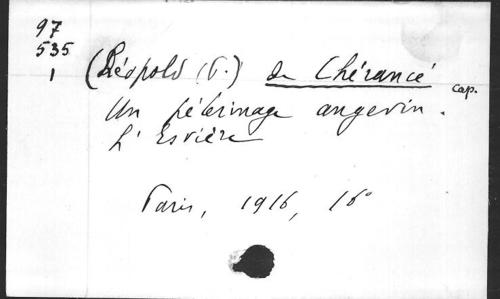 97
535
1
(Léopold (P.) de Chérancé
cap.
Un pélerinage angevin.
L'Esvière
Paris, 1916, 16°